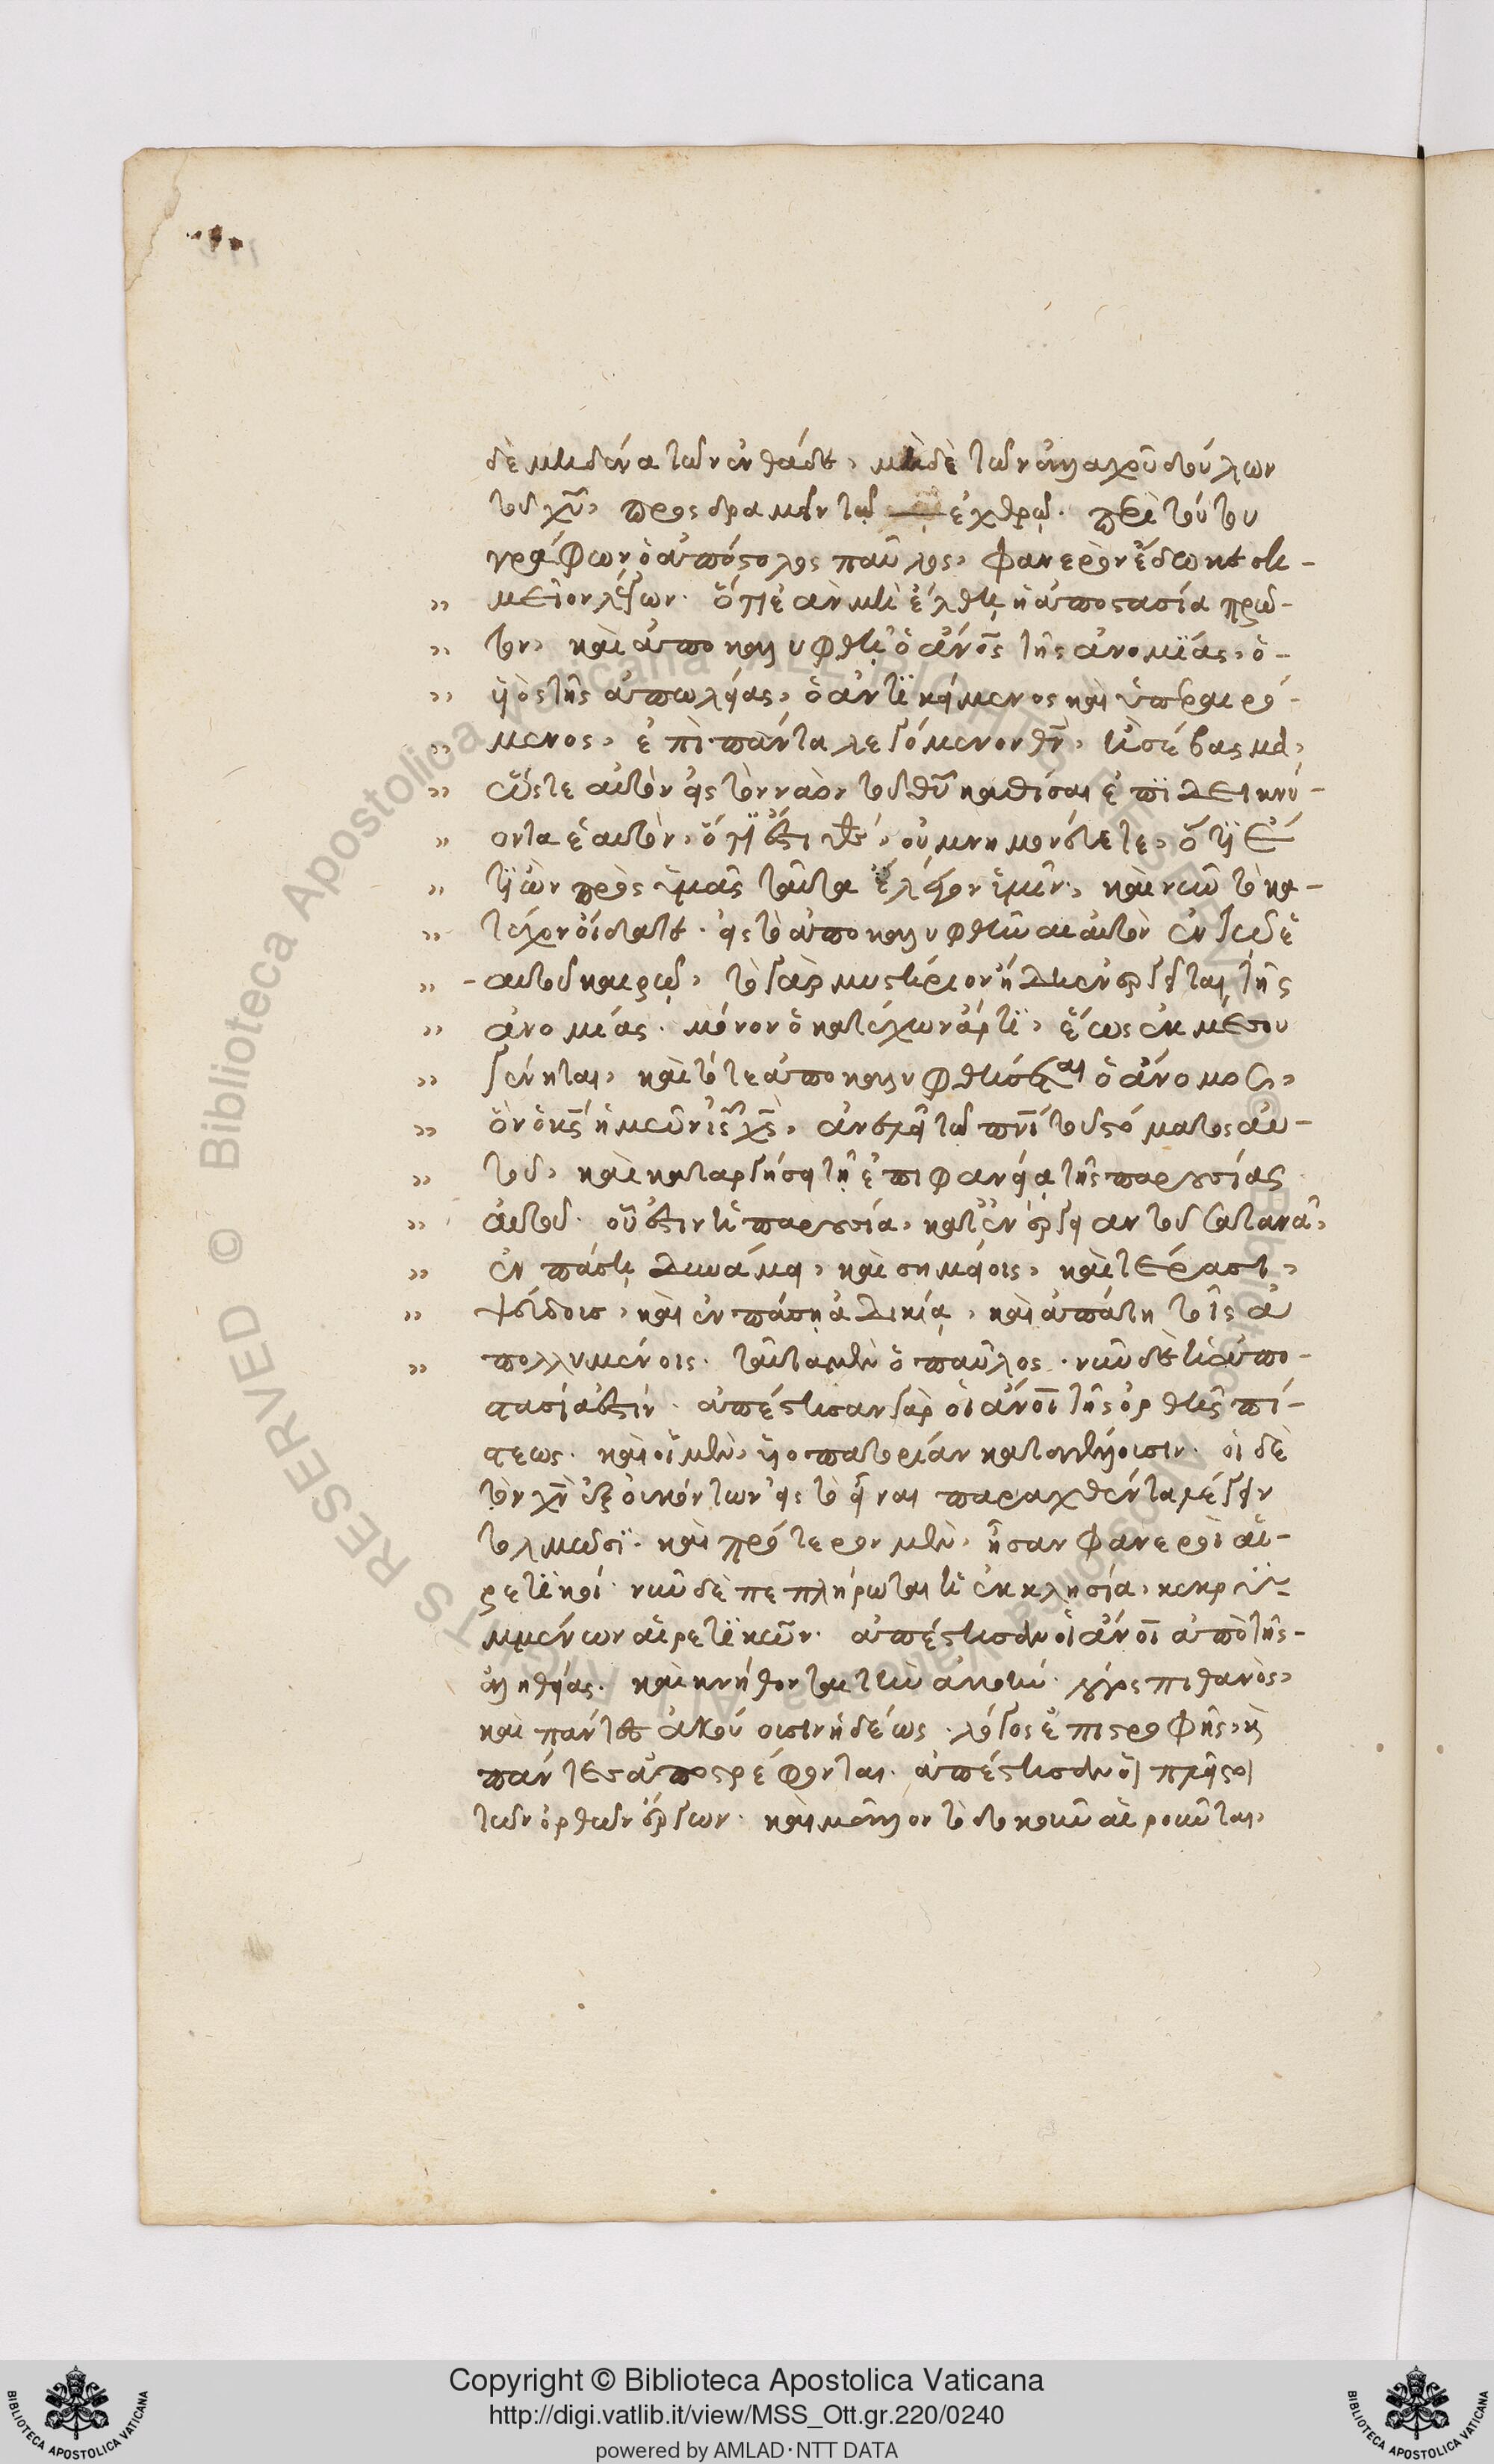 δὲ μηδένα τῶν ἐνθάδε, μηδὲ τῶν ἀλλαχοῦ δούλων
τοῦ χῦ, προσδραμεῖν τῷ ἐχθρῷ. περὶ τούτου
γράφων ὁ ἀπόστολος παῦλος, φανερὸν ἔδωκε ση-
" μεῖον λέγων. ὅτι ἐὰν μὴ ἔλθῃ ἡ ἀποστασία πρῶ-
" τον, καὶ ἀποκαλυφθῇ ὁ ἄνος τῆς ἀνομίας, ὁ
" ὑιὸς τῆς ἀπωλείας, ὁ ἀντικείμενος καὶ ὑπεραιρό-
" μενος, ἐπὶ πάντα λεγόμενον θν, ἢ σέβασμα,
" ὥστε αὐτὸν εἰς τὸν ναὸν τοῦ θῦ καθίσαι ἐπιδεικνύ-
" οντα ἑαυτὸν, ὅτι ἔστι θς, οὐ μνημονεύετε, ὅτι ἔ
" τι ὢν πρὸς ὑμᾶς ταῦτα ἔλεγον ὑμῖν, καὶ νῦν τὸ κα-
" τέχον οἴδατε. εἰς τὸ ἀποκαλυφθῆναι αὐτὸν ἐν τῷ ἑ
" αυτοῦ καιρῷ, τὸ γὰρ μυστήριον ἤδη ἐνεργεῖται τῆς
" ἀνομίας. μόνον ὁ κατέχων ἄρτι, ἕως ἐκ μέσου
" γένηται, καὶ τότε ἀποκαλυφθήσεται ὁ ἄνομος,
" ὃν ὁ κς ἡμῶν ις χς, ἀνελεῖ τῷ πνι τοῦ στόματος αὐ-
" τοῦ, καὶ καταργήσει τῇ ἐπιφανείᾳ τῆς παρουσίας
" αὐτοῦ. οὗ ἐστιν ἡ παρουσία, κατ' ἐνέργειαν τοῦ σατανᾶ,
" ἐν πάσῃ δυνάμει, καὶ σημείοις, καὶ τέρασι,
" ψεύδους, καὶ ἐν πάσῃ ἀδικίᾳ, καὶ ἀπάτῃ τοῖς ἀ
" πολλυμένοις. ταῦτα μὲν ὁ παῦλος. νῦν δὲ ἡ ἀπο-
στασία ἐστίν. ἀπέστησαν γὰρ οἱ ἄνοι τῆς ὀρθῆς πί-
στεως. καὶ οἱ μὲν, ὑιοπατορίαν καταγγέλλουσιν. οἱ δὲ
τὸν χν ἐξ οὐκ ὄντων εἰς τὸ εἶναι παραχθέντα λέγειν
τολμῶσι. καὶ πρότερον μὲν, ἦσαν φανεροὶ αἱ-
ρετικοί. νῦν δὲ πεπλήρωται ἡ ἐκκλησία, κεκρυ-
μμένων αἱρετικῶν. ἀπέστησαν οἱ ἄνοι ἀπὸ τῆς
ἀληθείας. καὶ κνήθονται τὴν ἀκοήν. λόγος πιθανὸς,
καὶ πάντες ἀκούουσιν ἡδέως. λόγος ἐπιστροφῆς, κὶ
πάντες ἀποστρέφονται. ἀπέστησαν οἱ πλεῖστοι
τῶν ὀρθῶν ἔργων. καὶ μᾶλλον τὸ δοκοῦν αἱροῦνται,
Copyright © Biblioteca Apostolica Vaticana
http://digi.vatlib.it/view/MSS_Ott.gr.220/0240
powered by AMLAD·NTT DATA